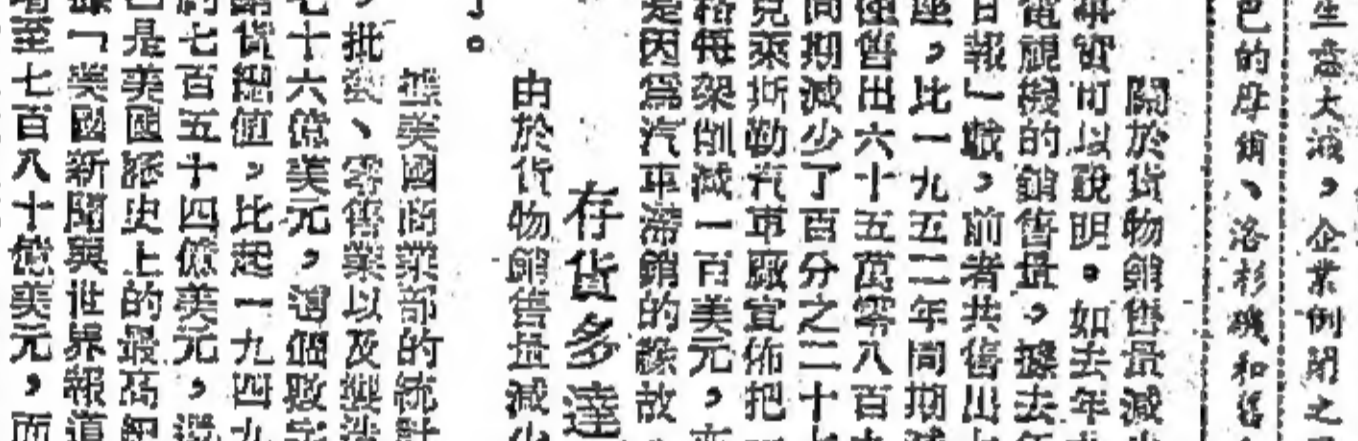 生意大減，企業倒閉之
色的摩天、洛杉磯和舊
關於貨物銷售量減少
事實可以說明。如去年
電視機的銷售量，據去年
日報」載，前者共售出
座，比一九五二年同期減
僅售出六十五萬零八百
同期減少了百分之二十七
克萊斯勒汽車廠宣佈把
格每架削減一百美元，
是因爲汽車滯銷的緣故
存貨多達
由於貨物銷售量減少
了。
據美國商業部的統計
，批發、零售業以及製造
七十六億美元，這個數字
銷貨總值，比起一九四九
約七百五十四億美元，還
已是美國歷史上的最高紀
據「美國新聞與世界報道
增至七百八十億美元，而